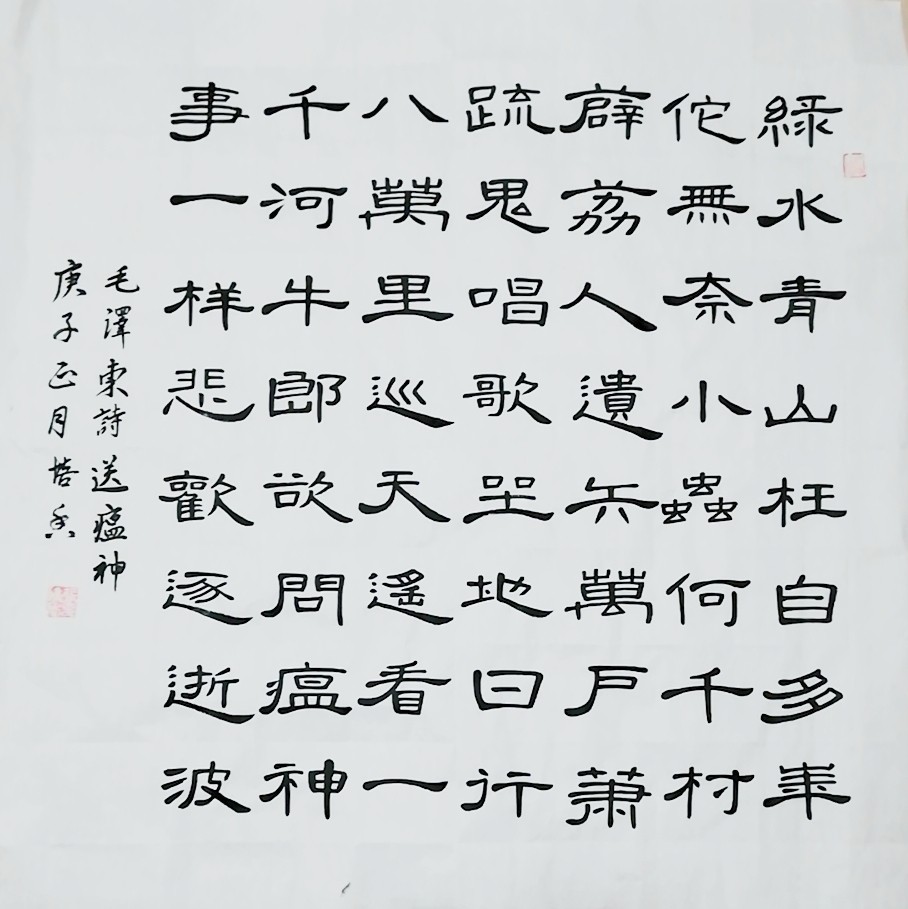 綠水青山枉自多華
佗無奈小蟲何千村
薜荔人遺矢萬戶蕭
疏鬼唱歌坐地日行
八萬里巡天遙看一
千河牛郎欲問瘟神
事一样悲歡逐逝波
毛澤東詩送瘟神
庚子正月培